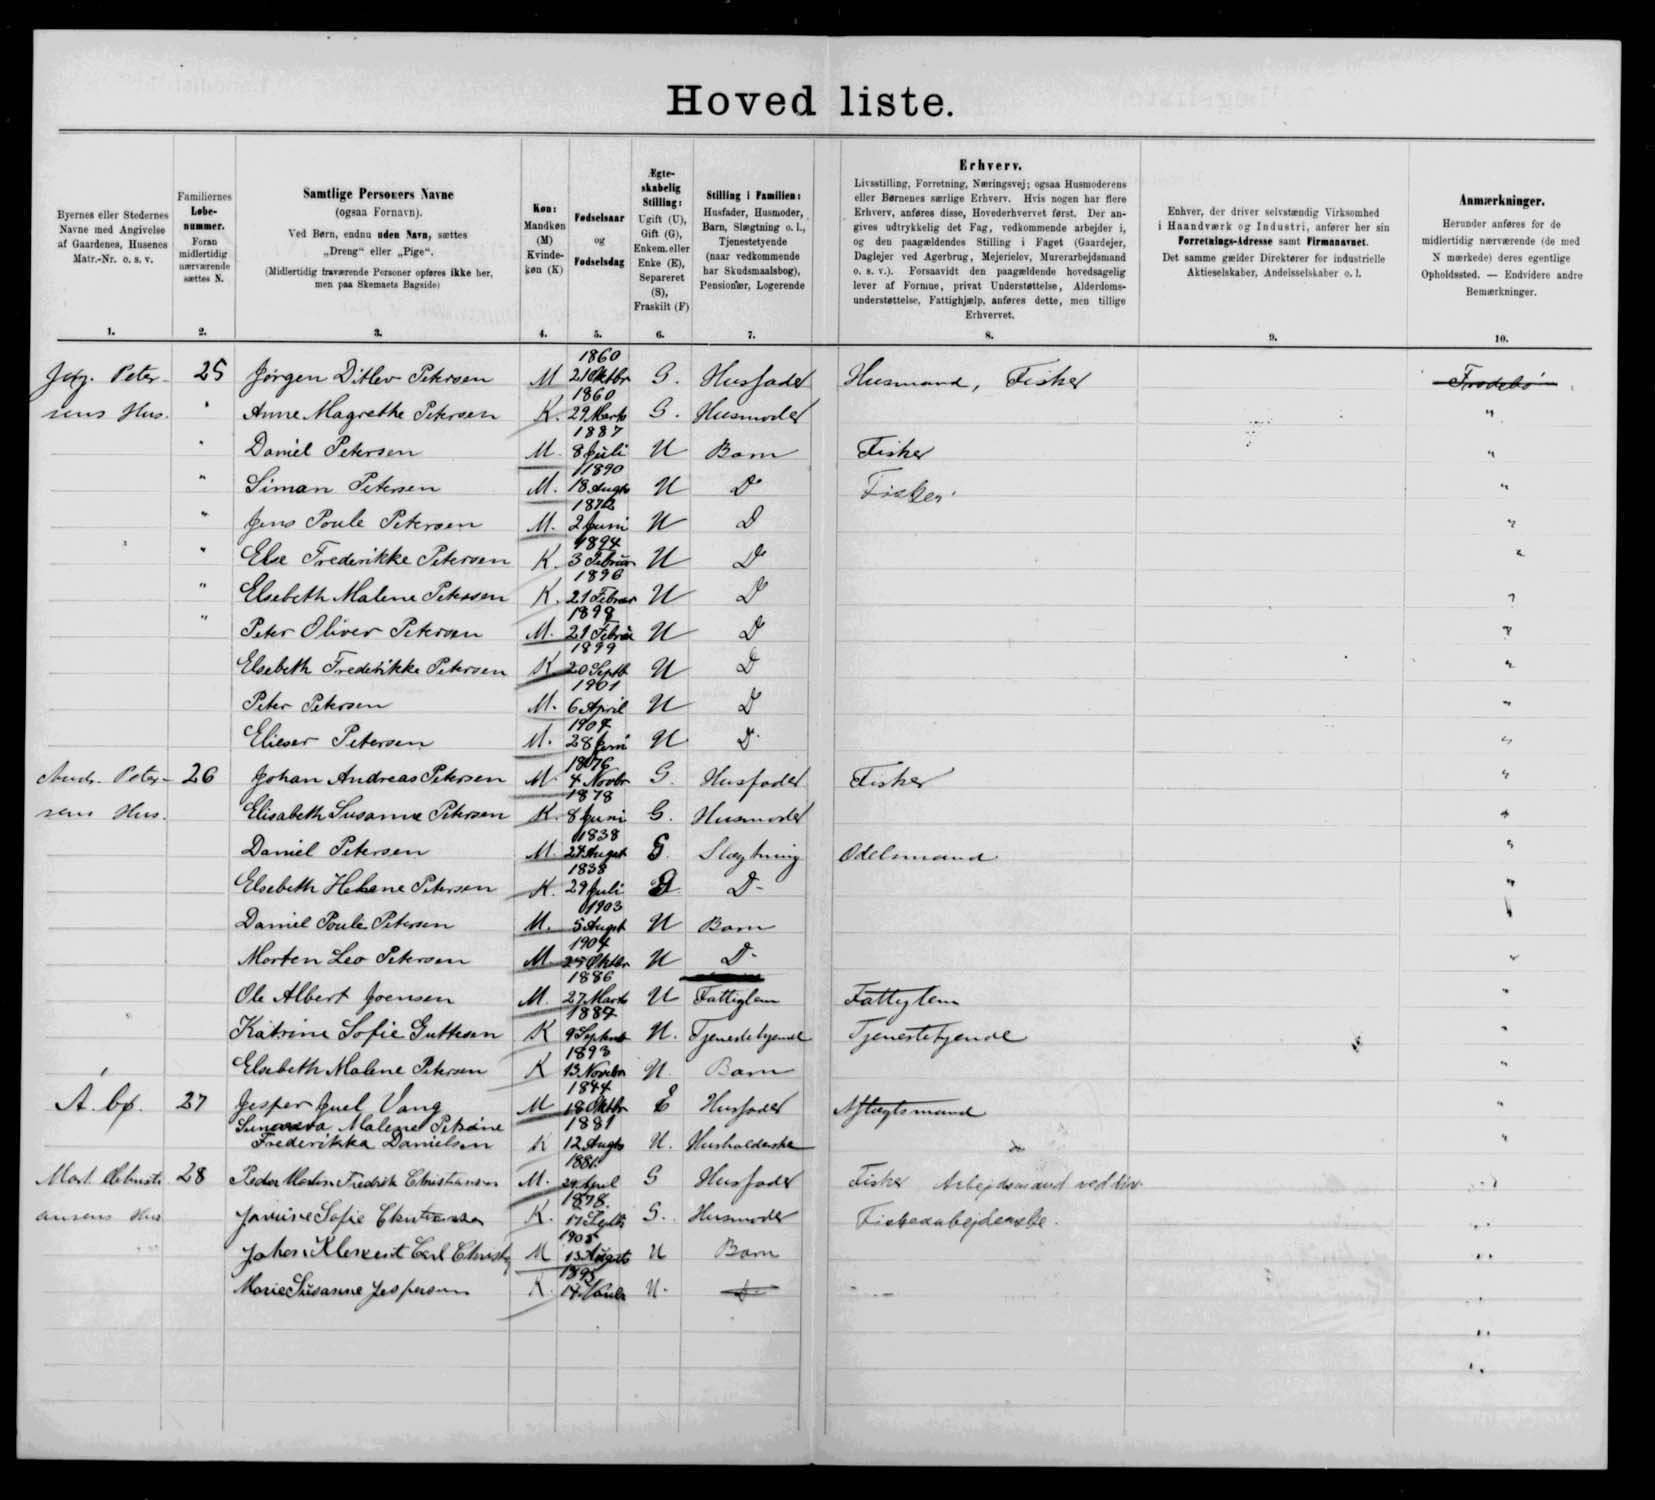 Hoved liste.
Byernes eller Stedernes
Navne med Angivelse
af Gaardenes, Husenes
Matr.-Nr. o. s. v.
1.
Familiernes
Løbe-
nummer.
Foran
midlertidig
nærværende
sættes N.
2.
Samtlige Personers Navne
(ogsaa Fornavn).
Ved Børn, endnu uden Navn, sættes
„Dreng" eller „Pige".
(Midlertidig fraværende Personer opføres ikke her,
men paa Skemaets Bagside)
3.
Køn:
Mandkøn
(M)
Kvinde-
køn (K)
4.
Fødselsaar
og
Fødselsdag
5.
Ægte-
skabelig
Stilling:
Ugift (U),
Gift (G),
Enkem. eller
Enke (E),
Separeret
(S),
Fraskilt (F)
6.
Stilling i Familien:
Husfader, Husmoder,
Barn, Slægtning o. l.,
Tjenestetyende
(naar vedkommende
har Skudsmaalsbog),
Pensionær, Logerende
7.
Erhverv.
Livsstilling, Forretning, Næringsvej; ogsaa Husmoderens
eller Børnenes særlige Erhverv. Hvis nogen har flere
Erhverv, anføres disse, Hovederhvervet først. Der an-
gives udtrykkelig det Fag, vedkommende arbejder i,
og den paagældendes Stilling i Faget (Gaardejer,
Daglejer ved Agerbrug, Mejerielev, Murerarbejdsmand
o. s. v.). Forsaavidt den paagældende hovedsagelig
lever af Formue, privat Understøttelse, Alderdoms-
understøttelse, Fattighjælp, anføres dette, men tillige
Erhvervet.
8.
Enhver, der driver selvstændig Virksomhed
i Haandværk og Industri, anfører her sin
Forretnings-Adresse samt Firmanavnet.
Det samme gælder Direktører for industrielle
Aktieselskaber, Andelsselskaber o. l.
9.
Anmærkninger.
Herunder anføres for de
midlertidig nærværende (de med
N mærkede) deres egentlige
Opholdssted. — Endvidere andre
Bemærkninger.
10.
Jørg. Peter- 25 Jørgen Ditlev Petersen M 1860 21 Oktbr G. Husfader Husmand, Fisker
sens Hus. " Anne Magrethe Petersen K. 1860 29 Marts G. Husmoder "
" Daniel Petersen M. 1887 8 Juli U Barn Fisker "
" Siman Petersen M. 1890 18 Augst U D Fisker "
" Jens Poule Petersen M. 2 Juni U D "
" Else Frederikke Petersen K. 1894 3 Februar U D "
" Elsebeth Malene Petersen K. 1896 21 Februar U D
" Peter Oliver Petersen M. U D "
Elsebeth Frederikke Petersen K 1899 20 Septb U D "
Peter Petersen M. 1901 6 April U D "
Elieser Petersen M. 1904 28 Juni U D "
Andr. Peter- 26 Johan Andreas Petersen M 1876 4 Novbr G. Husfader Fisker "
sens Hus. Elisabeth Susanne Petersen K. 1878 8 Juni G. Husmoder "
Daniel Petersen M. 1838 24 Augst G. Slægtning Odelsmand "
Elsebeth Helene Petersen K. 1838 29 Juli G D "
Daniel Poule Petersen M. 1903 5 Augst U Barn
Morten Leo Petersen M. 1904 Oktbr U D "
Ole Albert Joensen M. 1886 27 Marts U Fattiglem Fattiglem "
Katrine Sofie Guttesen K 1884 9 Septemb U. Tjenestetyende Tjenestetyende "
Elsebeth Malene Petersen K 1893 13 Novebr U. Barn "
Á. bø. 27 Jesper Juel Vang M 1844 18 Oktbr E Husfader Aftægtsmand "
Sunneva Malene Petrine
Frederikka Danielsen K 1881 12 Augst U. Husholderske "
28 Peder Morten Fredrik Christiansen M. 1881 April G Husfader Fisker Arbejdsmand ved
ansens Hus Sofie Christiansen K. 1878. 17 G. Husmoder Fiskearbejderske. "
Johan Klement Carl M 13 Augst U Barn "
Marie Susanne Jespersen K. 1895 14 U. D
"
"